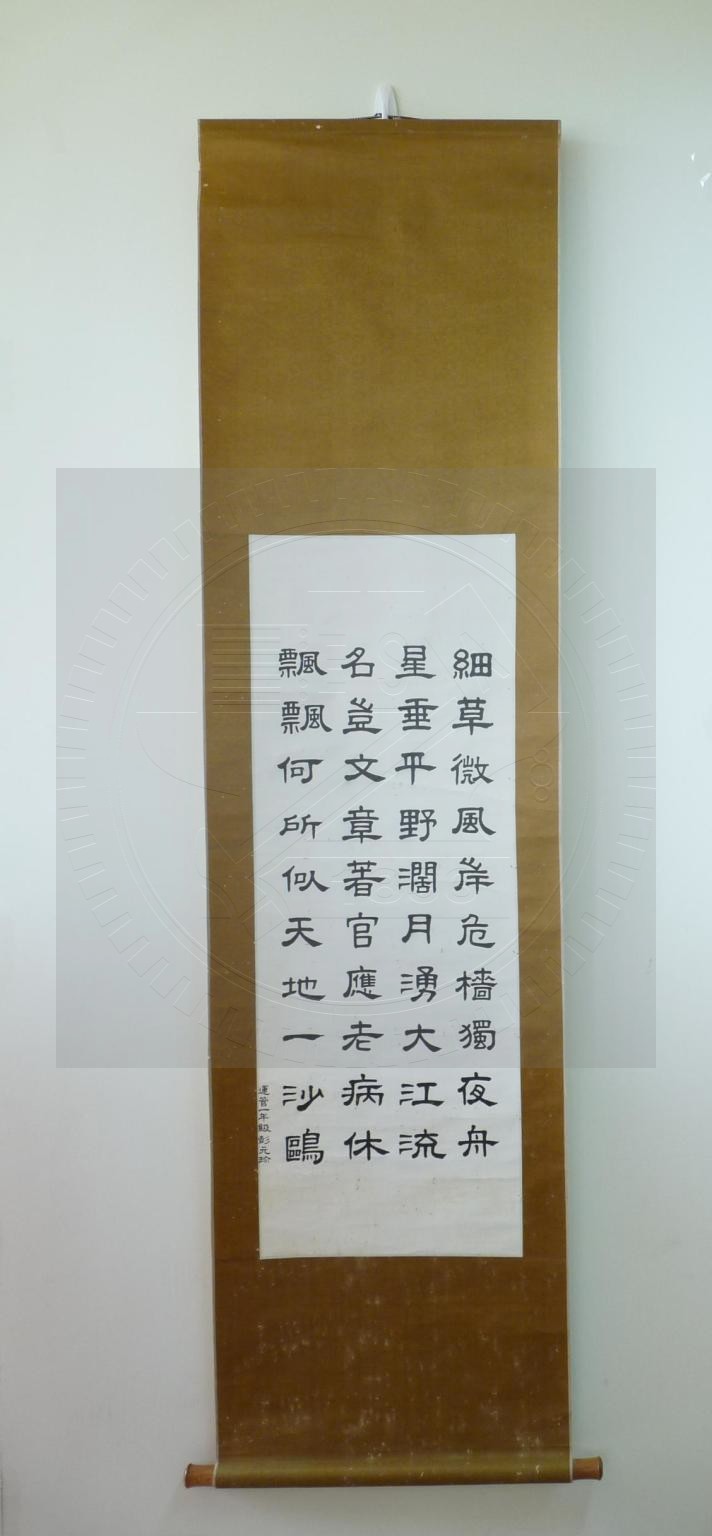 細草微風岸危檣獨夜舟
星垂平野濶月湧大江流
名豈文章著官應老病休
飄飄何所似天地一沙鷗
運管一年級彭元琦